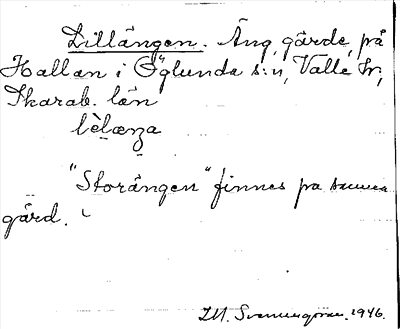 Lillängen. Äng, gärde, på
Hallan i Öglunda s:n, Valle hr,
Skarab. län
lèlæŋa
"Storängen" finnes på samma
gård.
1946.